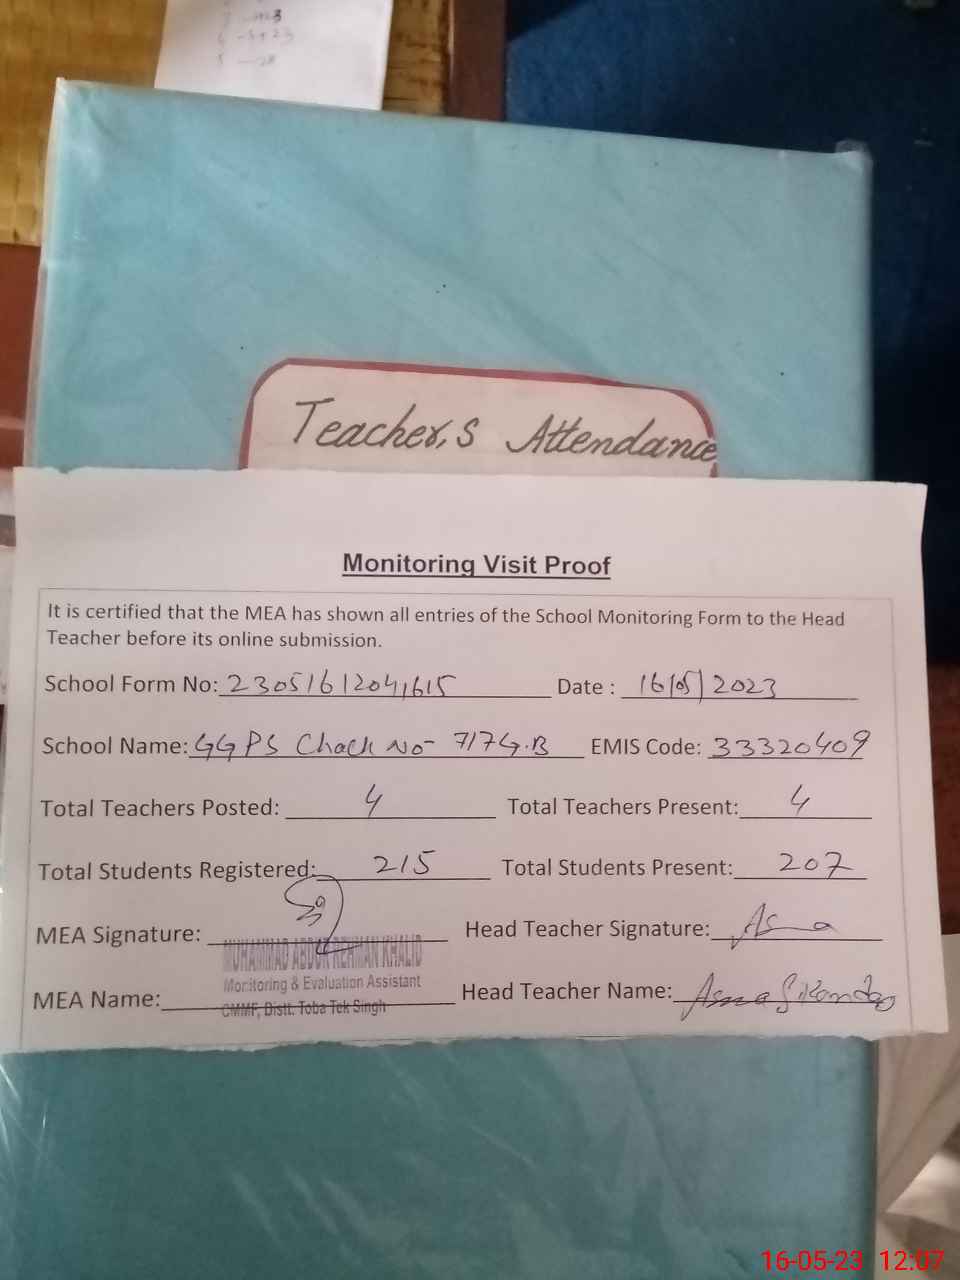 Teacher,s Attendance
Monitoring Visit Proof
It is certified that the MEA has shown all entries of the School Monitoring Form to the Head
Teacher before its online submission.
School Form No: 23051612041615 Date : 16/05/2023
School Name: GGPS Chack No- 717G.B EMIS Code: 33320409
Total Teachers Posted: 4 Total Teachers Present: 4
Total Students Registered: 215 Total Students Present: 207
MEA Signature: Head Teacher Signature: Asma
MUHAMMAD ABDUR REHMAN KHALID
Monitoring & Evaluation Assistant
MEA Name: Head Teacher Name: Asma Sikandar
CMMF, Distt. Toba Tek Singh
16-05-23 12:07